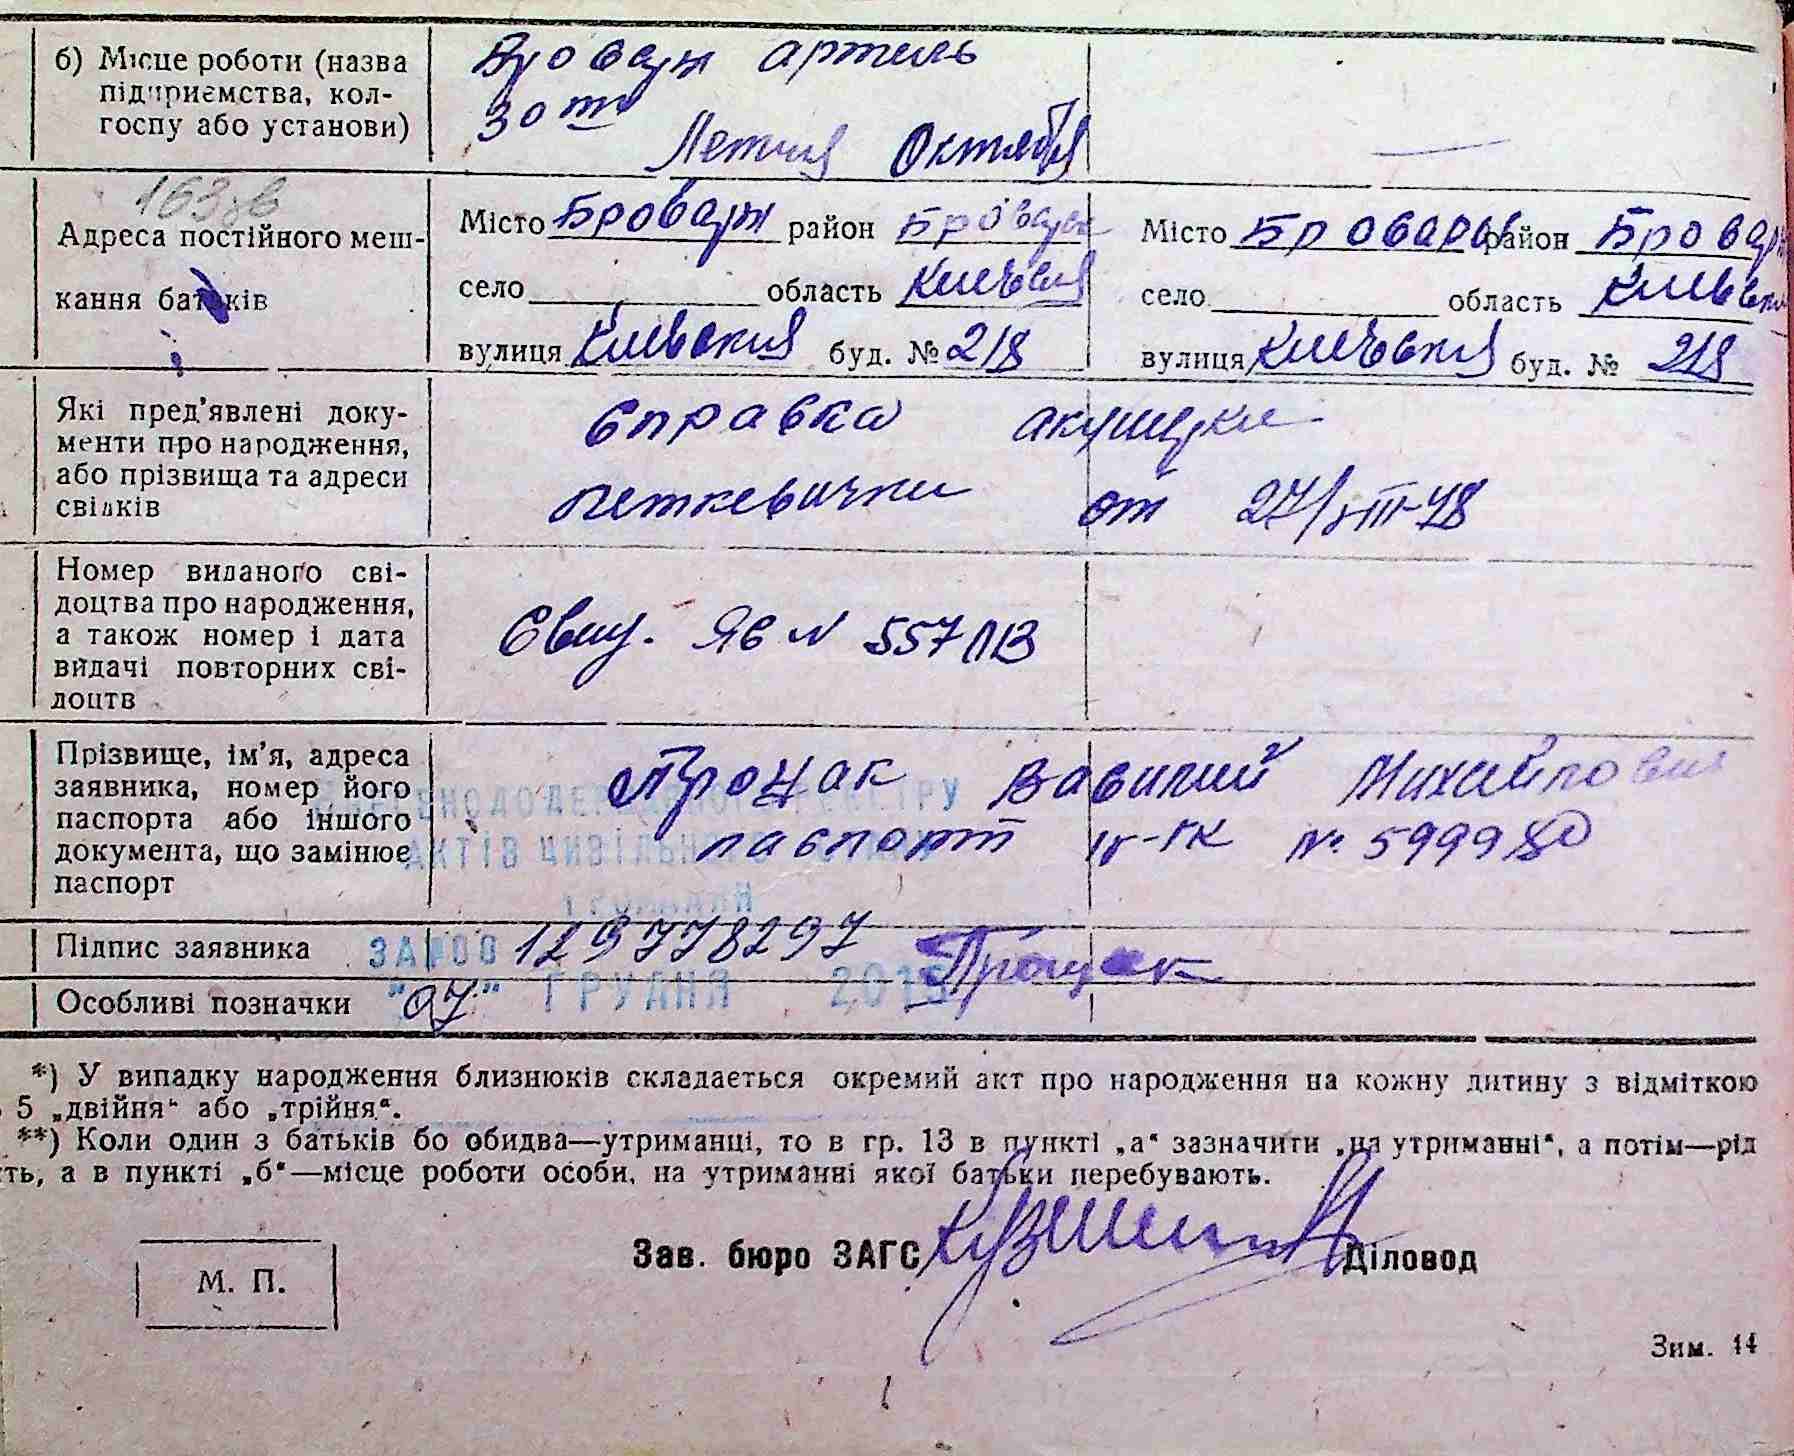 б) Місце роботи (назва
підприємства, кол-
госпу або установи)
Бровары артель
30 ти
Летия Октября
Адреса постійного меш-
кання батьків
Місто Бровары район Бровары
село область Киевская
вулиця Киевская буд. № 218
Місто Бровары район Бровары
село область Киевская
вулиця Киевская буд. № 218
Які пред'явлені доку-
менти про народження,
або прізвища та адреси
свідків
Справка акушерки
Петкевички от 27/VIII-48
Номер виданого сві-
доцтва про народження,
а також номер і дата
видачі повторних сві-
доцтв
ЯБ N 557
Прізвище, ім'я, адреса
заявника, номер його
паспорта або іншого
документа, що замінює
паспорт
Процак Василий Михайлович
паспорт № 599980
АКТІВ ЦИВІЛЬНОГО СТАНУ
ГРОМАДЯН
Підпис заявника
ЗА №00 129778297 Процак
Особливі позначки
"07" ГРУДНЯ
*) У випадку народження близнюків складається окремий акт про народження на кожну дитину з відміткою
5 „двійня“ або „трійня“.
**) Коли один з батьків бо обидва—утриманці, то в гр. 13 в пункті „а“ зазначити „на утриманні“, а потім—рід
ть, а в пункті „б“—місце роботи особи, на утриманні якої батьки перебувають.
Зав. бюро ЗАГС Діловод
М. П.
Зим. 14